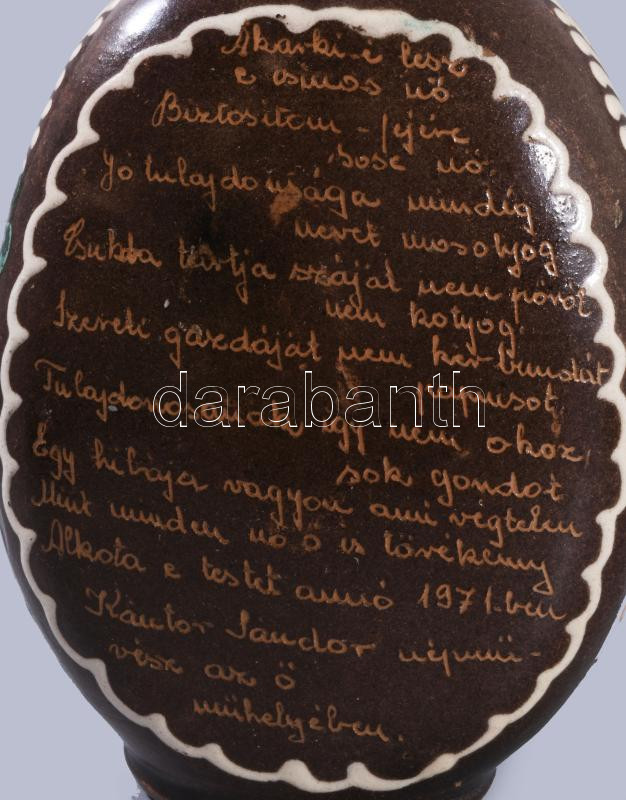 Akárki-é lesz
e csinos nő
Biztosítom - fejére
sose nő.
Jó tulajdonsága mindíg
nevet mosolyog
Csukva tartja száját nem pöröl
nem kotyog.
Szereti gazdáját nem kér bundát
Tulajdonosának így nem okoz
sok gondot
Egy hibája vagyon ami végtelen
Mint minden nő ő is törékeny
Alkota e testet anno 1971-ben
Kántor Sándor népmű-
vész az ő
műhelyében.
darabanth